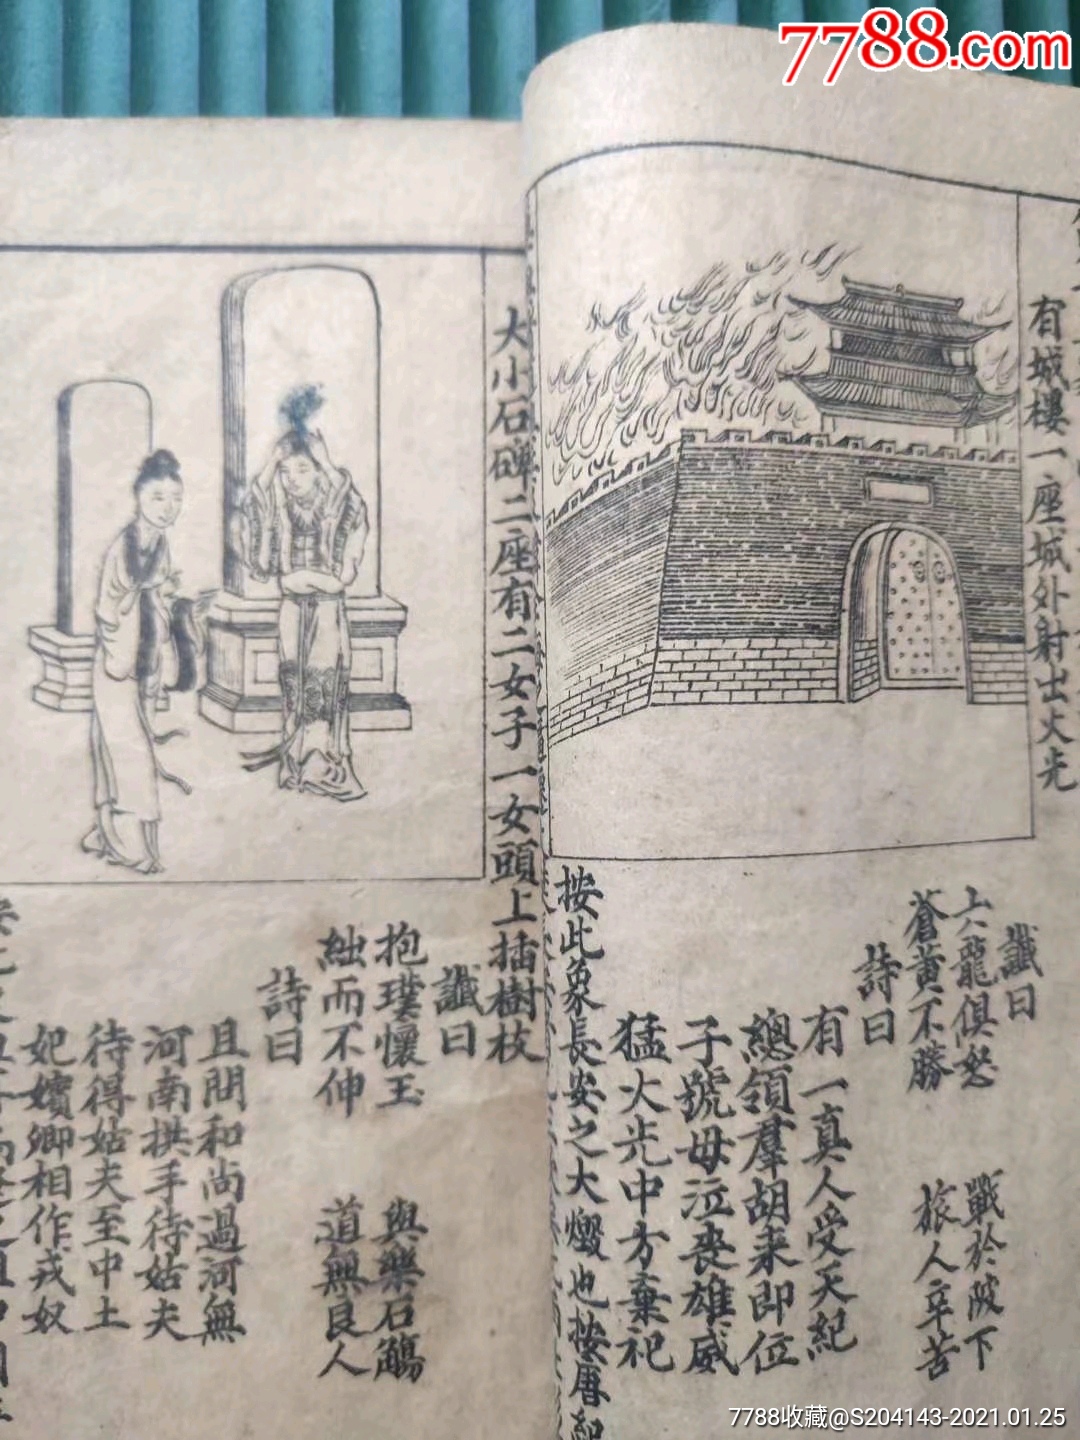 7788.com
有城樓一座城外射出火光
讖曰
六龍俱怒 戰於陂下
蒼黃不勝 旅人辛苦
詩曰
有一真人受天紀
總領羣胡来即位
子號母泣喪雄威
猛火光中方棄祀
按此象長安之大燬也按唐紀
大小石碑二座有二女子一女頭上插樹枝
讖曰
抱璞懷玉 與樂石觴
絀而不伸 道無良人
詩曰
且問和尚過河無
河南拱手待姑夫
待得姑夫至中土
妃嬪卿相作戎奴
7788收藏@S204143-2021.01.25